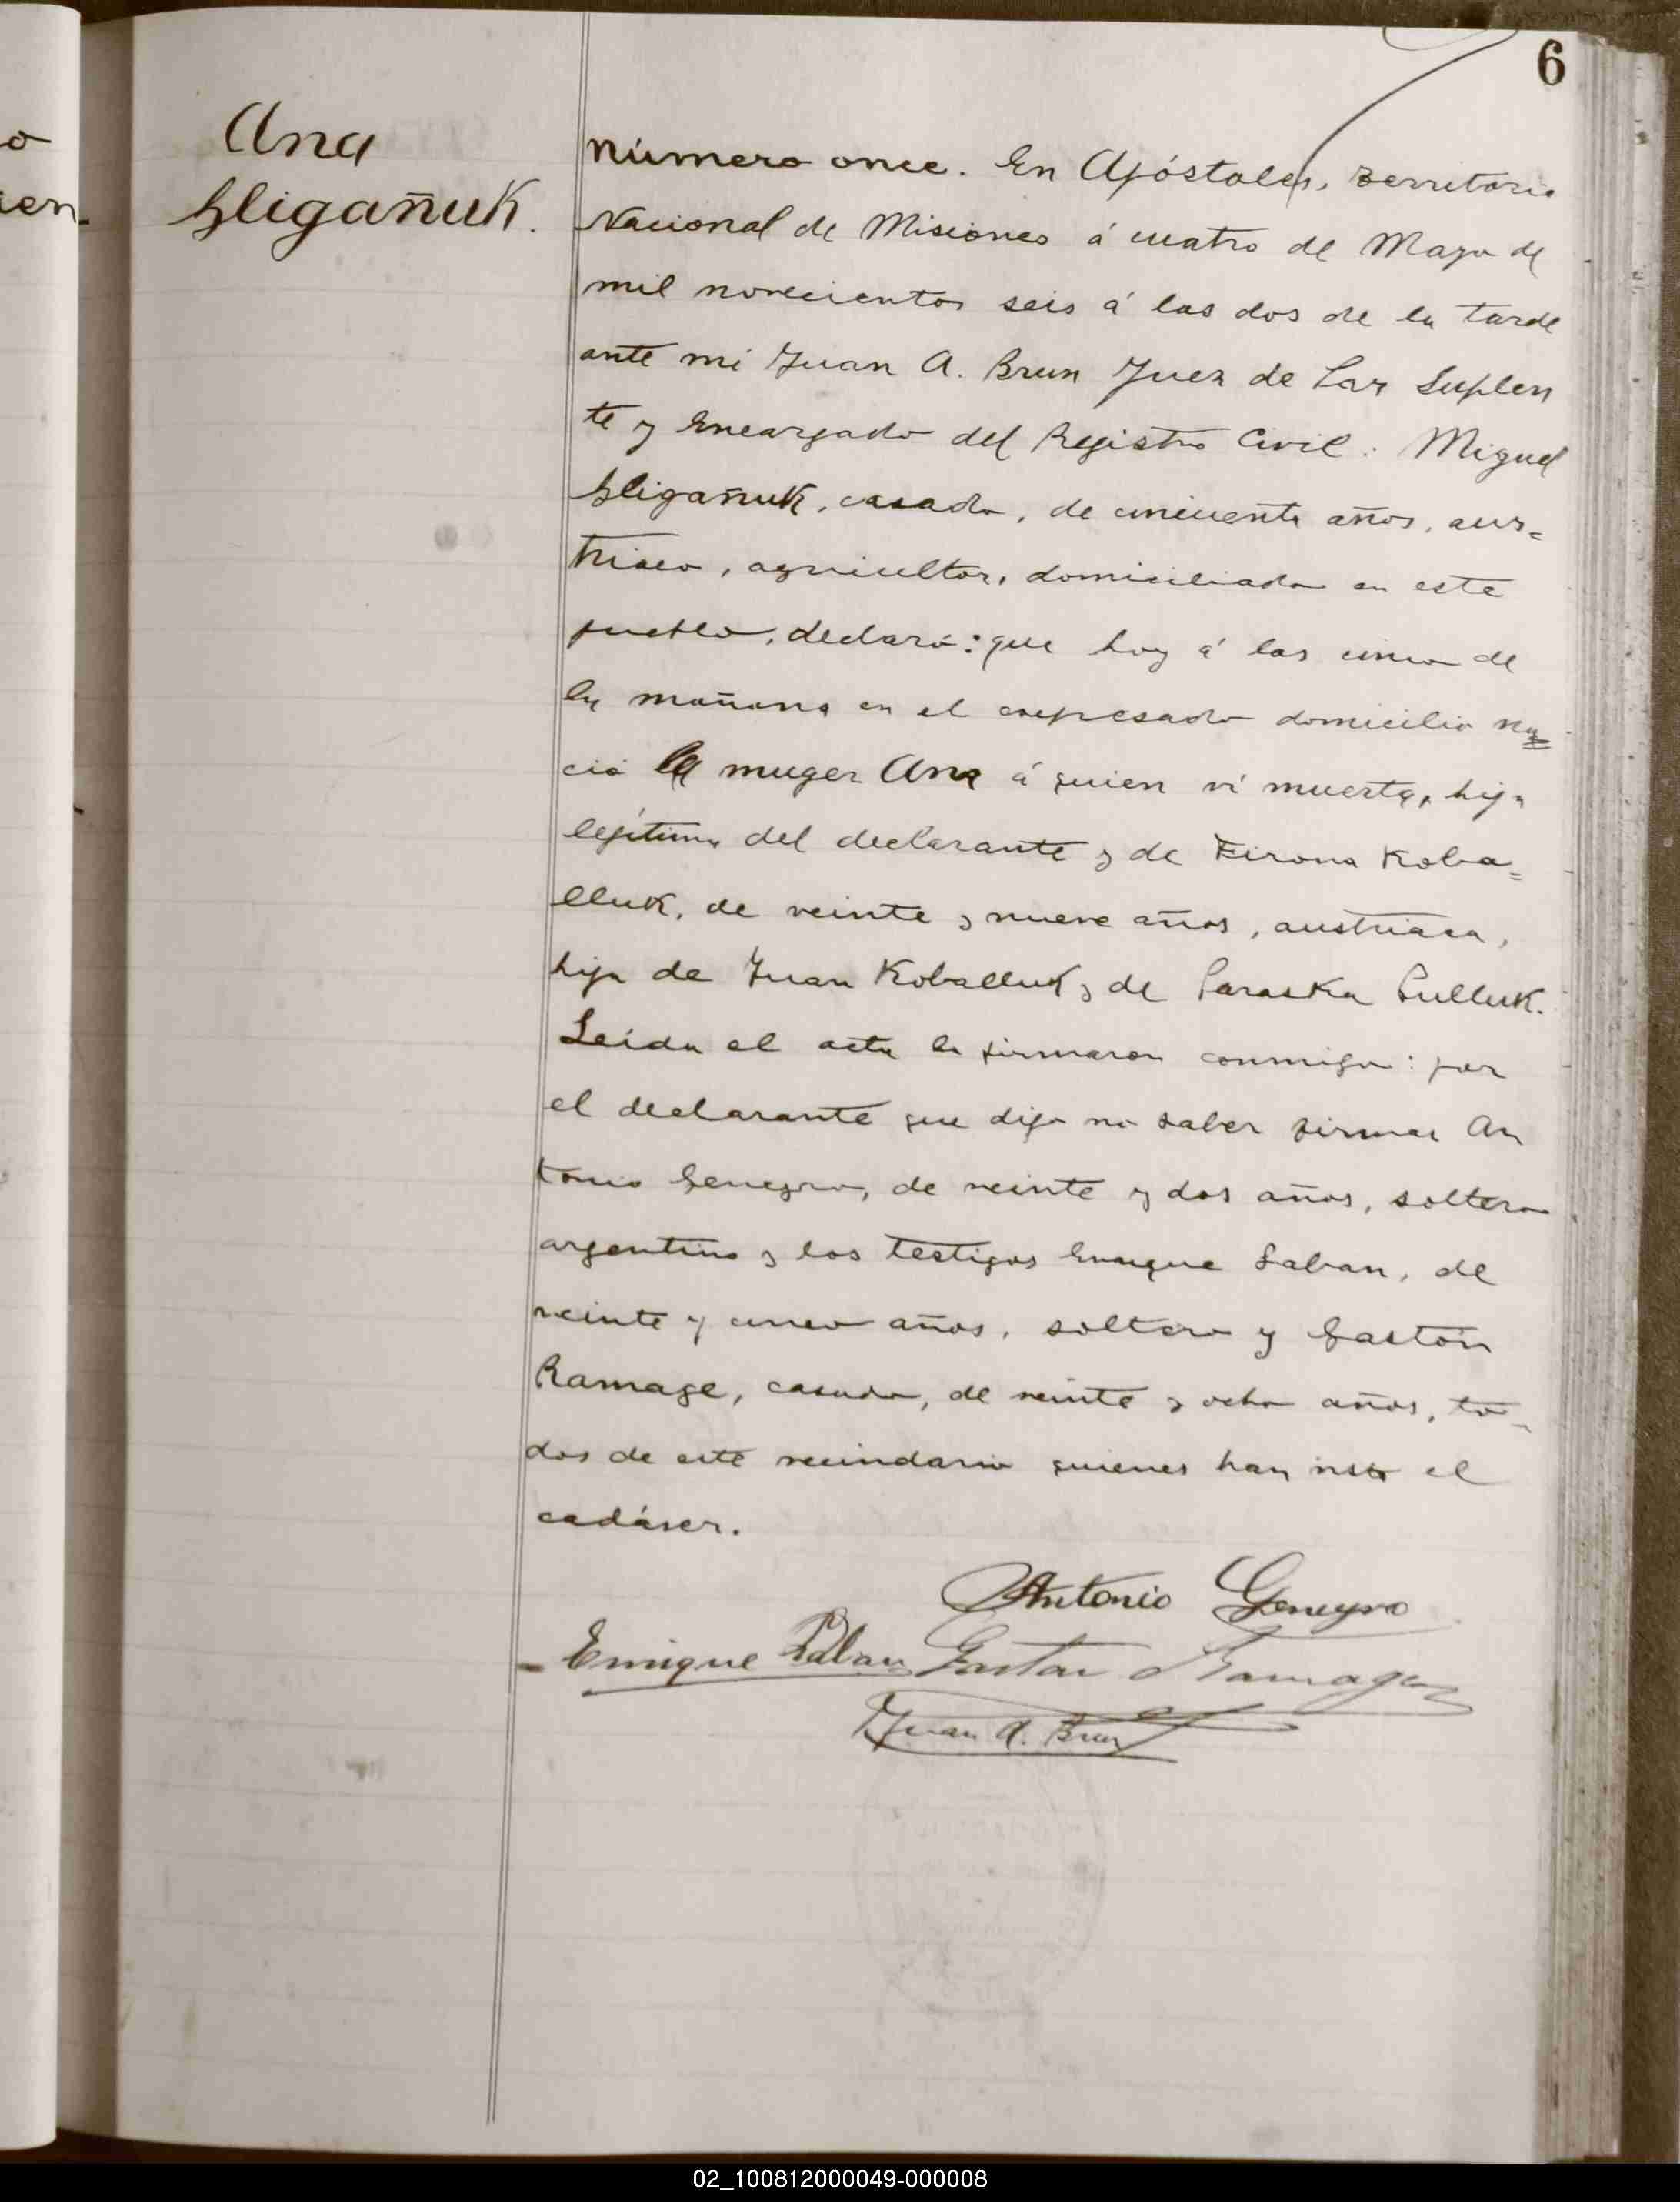 6
o
ien-
Ana
Gligañuk.
Número once. En Apóstoles, Territorio
Nacional de Misiones á cuatro de Mayo de
mil novecientos seis á las dos de la tarde
ante mi Juan A. Brun Juez de Paz Suplen
te y Encargado del Registro Civil: Miguel
Gligañuk, casado, de cincuenta años, aus=
triaco, agricultor, domiciliado en este
pueblo, declaró: que hoy á las cinco de
la mañana en el expresado domicilio na=
ció la muger Ana á quien ví muerta, hija
legítima del declarante y de Firona Koba=
lluk, de veinte y nueve años, austriaca,
hija de Juan Koballuk y de Paraska Pulluk.
Leida el acta la firmaron conmigo: por
el declarante que dijo no saber firmar An
tonio Geneyro, de veinte y dos años, soltero
argentino y los testigos Enrique Laban, de
veinte y cinco años, soltero y Gastón
Ramage, casado, de veinte y ocho años, to-
dos de este vecindario quienes han visto el
cadáver.
Antonio Geneyro
Enrique Laban Gaston Ramage
Juan A. Brun
02_100812000049-000008